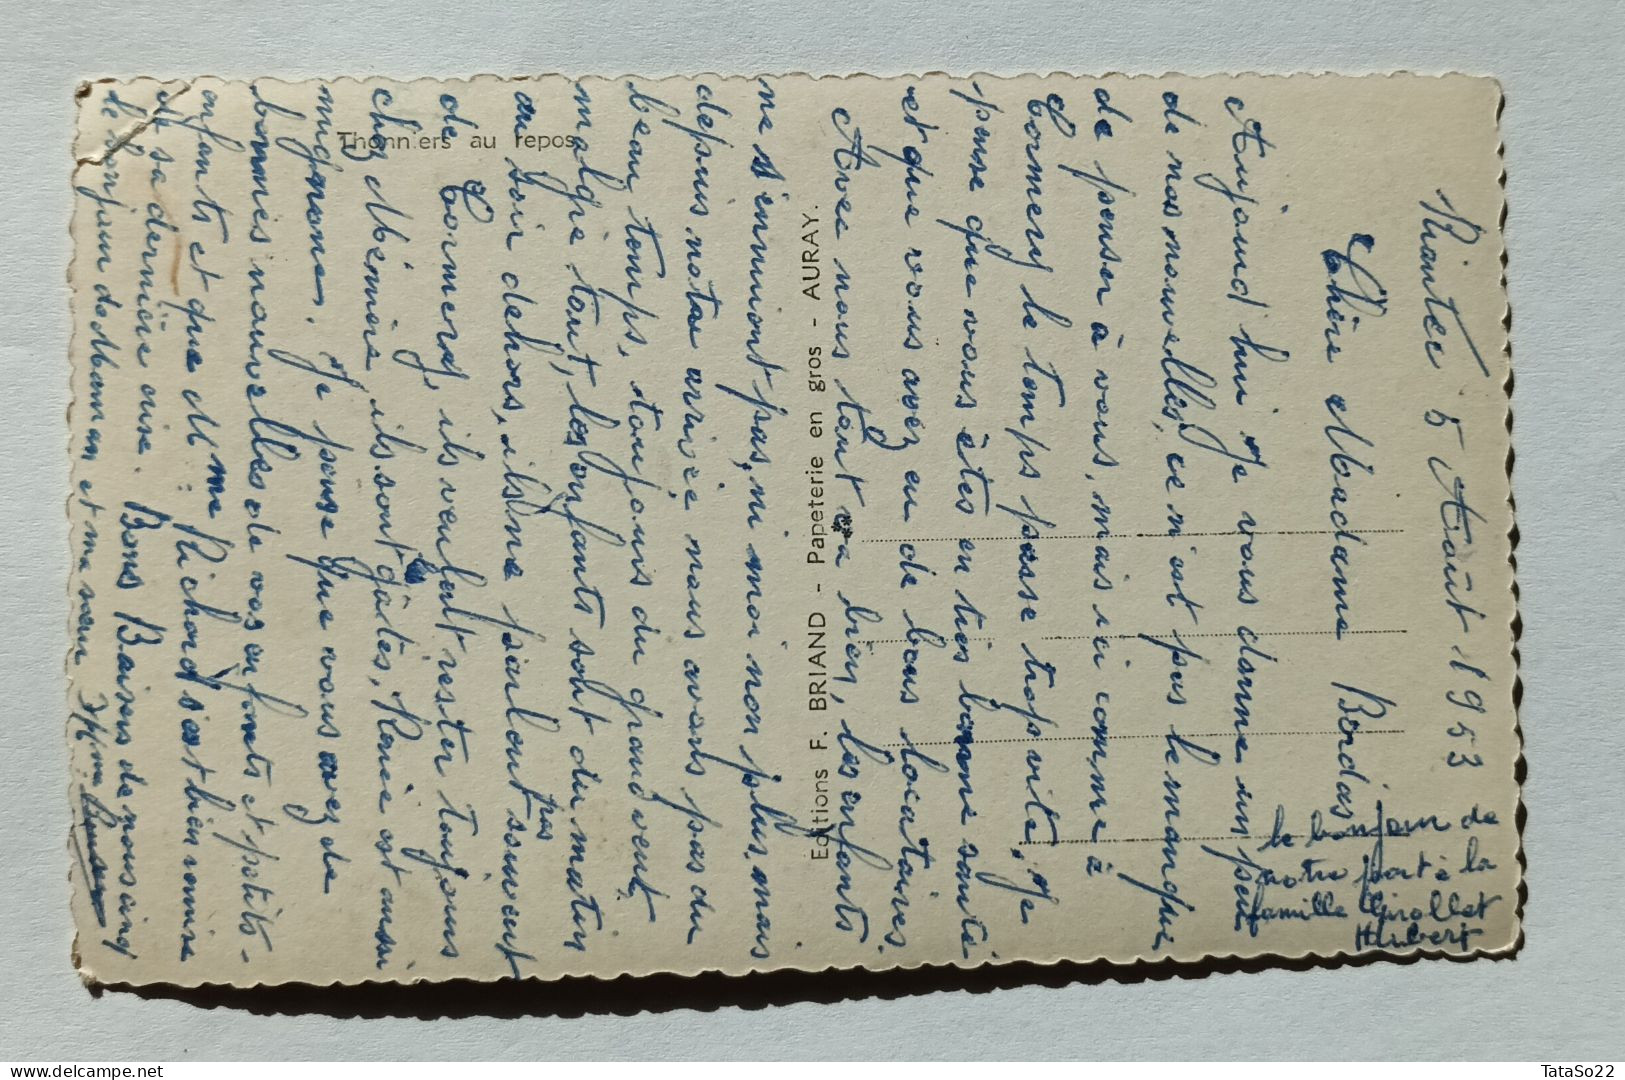 Riantec 5 Août 1953
Chère Madame Bordas
Aujourd'hui Je vous donne un peu
de nos nouvelles, ce n'est pas le manque
de penser à vous, mais ici comme à
Cormery le temps passe trop vite, Je
pense que vous êtes en très bonne santé
et que vous avez eu de bons locataires.
Avec nous tout va bien, les enfants
ne s'ennuiont pas, ni moi non plus, mais
depuis notre arrivée nous avons pas du
beau temps, toujours du grand vent,
malgré tout, les enfants sont du matin
au soir dehors, ils ne parlent pas souvent
de Cormery, ils veulent rester toujours
chez Mémère, ils sont gâtés, Renée est aussi
mignonne. Je pense que vous avez de
bonnes nouvelles de vos enfants et petits-
enfants et que Mme Richard s'est bien remise
de sa dernière crise. Bons Baisers de nous cinq
le bonjour de Maman et ma sœur
le bonjour de
notre part à la
famille Girollet
Hubert
Thonniers au repos
Editions F. BRIAND - Papeterie en gros - AURAY.
TataSo22